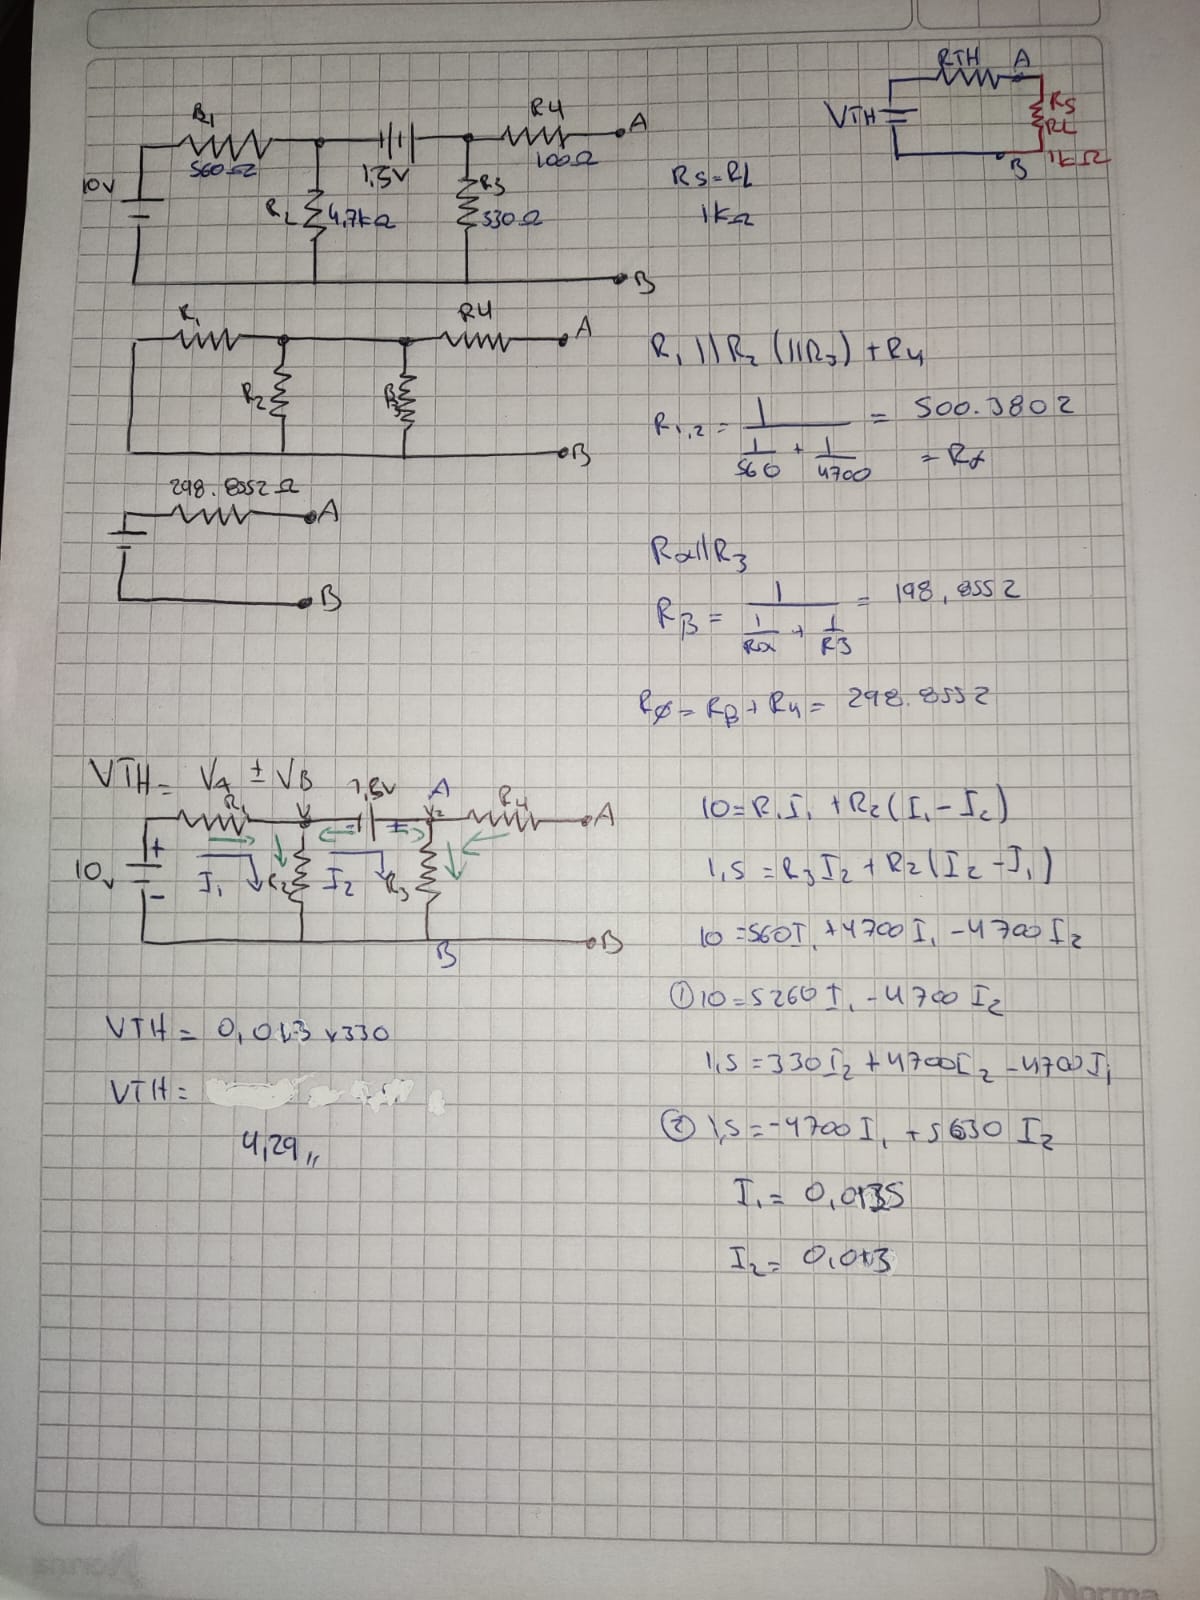 R1 R4 A
560Ω 1,5V 100Ω
10V R2 4,7kΩ R3 330Ω
B
RTH A
VTH RS
RL
B 1kΩ
RS=RL
1kΩ
R1 R4 A
R2 R3
B
R1 || R2 (||R3) + R4
R1,2 = 1 / (1/560 + 1/4700) = 500.3802
= Rα
298.8552 Ω
A
B
Rα||R3
Rβ = 1 / (1/Rα + 1/R3) = 198,8552
Rφ = Rβ + R4 = 298.8552
VTH = VA ± VB
R1 1,5V A R4 A
10V + - I1 R2 I2 R3
B B
10 = R1I1 + R2(I1 - I2)
1,5 = R3I2 + R2(I2 - I1)
10 = 560I1 + 4700I1 - 4700I2
① 10 = 5260I1 - 4700I2
1,5 = 330I2 + 4700I2 - 4700I1
② 1,5 = -4700I1 + 5030 I2
I1 = 0,0135
I2 = 0,013
VTH = 0,013 x 330
VTH =
4,29 "
Norma